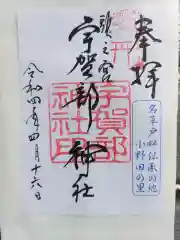 奉拝
歌之宮
宇賀部神社
宇賀部
神社印
令和四年四月十六日
名草戸畔伝承の地
小野田の里